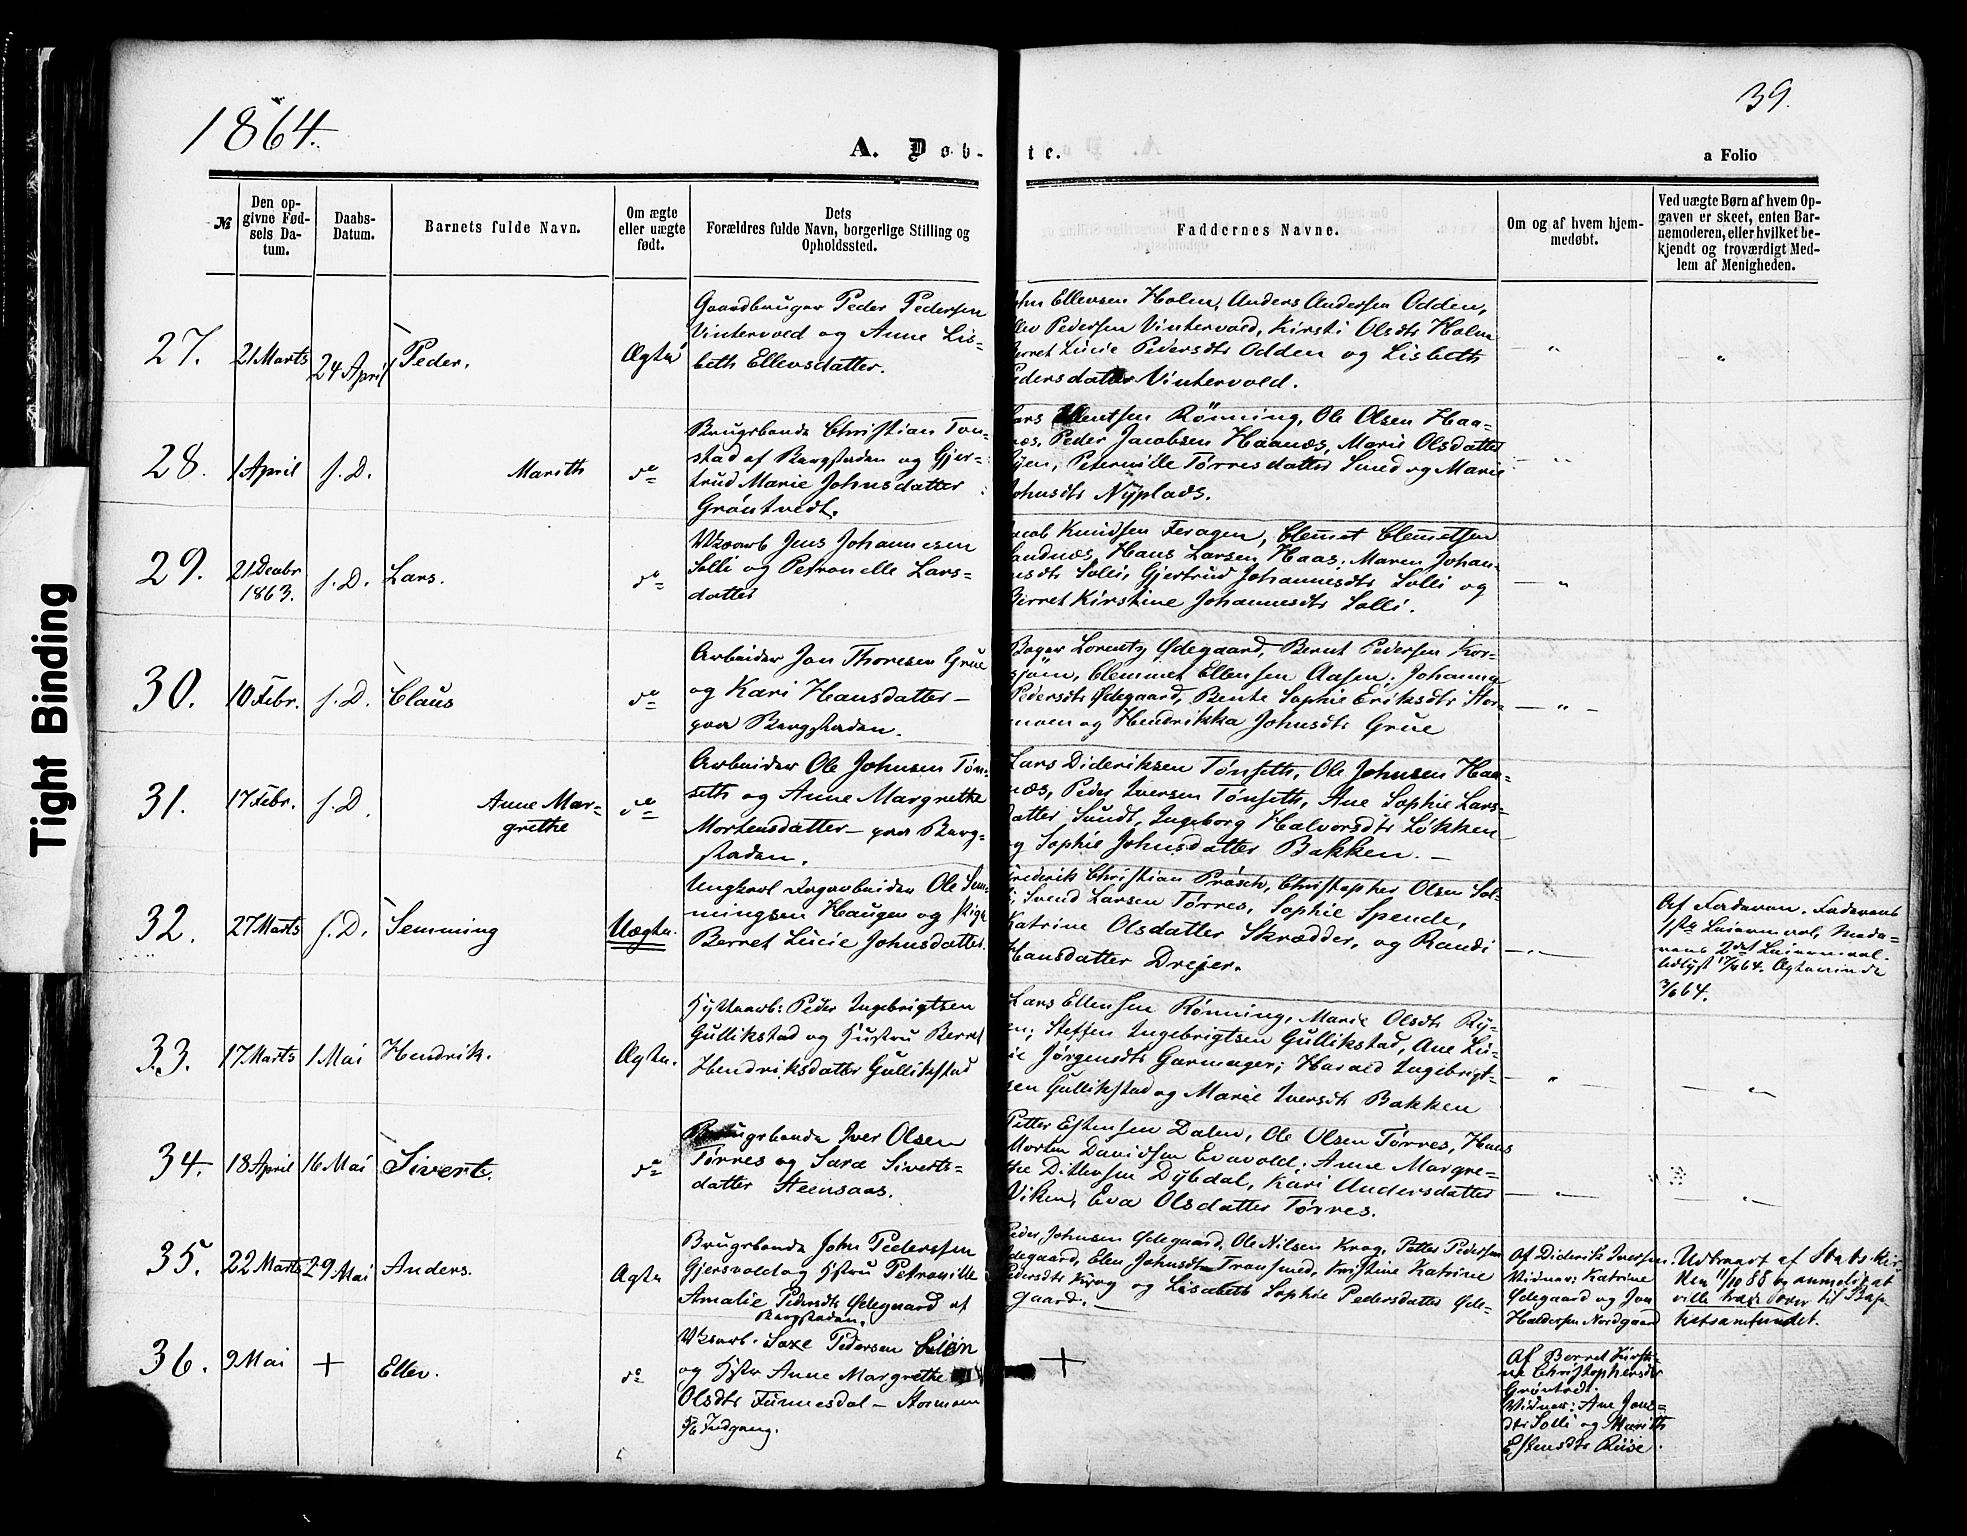 1864.
39.
A. Døb-
te.
a Folio
№
Den op-
givne Fød-
sels Da-
tum.
Daabs-
Datum.
Barnets fulde Navn.
Om ægte
eller uægte
født.
Dets
Forældres fulde Navn, borgerlige Stilling og
Opholdssted.
Faddernes Navne.
Om og af hvem hjem-
medøbt.
Ved uægte Børn af hvem Op-
gaven er skeet, enten Bar-
nemoderen, eller hvilket be-
kjendt og troværdigt Med-
lem af Menigheden.
27.
21 Marts
24 April
Peder.
Ægte
Gaardbruger Peder Pedersen
Vintervold og Anne Lis-
beth Ellevsdatter.
John Ellevsen Holm, Anders Andersen Odden,
Ellev Pedersen Vintervold, Kirsti Olsdtr Holm
Berret Lucie Pedersdtr Odden og Lisbeth
Pedersdatter Vintervold.
28.
1 April
s. D.
Marith
do
Brugsbonde Christian Ton-
stad af Bergstaden og Gjer-
trud Marie Johnsdatter
Grøntvedt.
Lars Ellentsen Rönning, Ole Olsen Haa-
næs, Peder Jacobsen Haanæs, Marie Olsdatter
Ryen, Peternille Tørresdatter Smed og Marie
Johnsdtr Nyplads.
29.
21 Decbr
1863.
s. D.
Lars.
do
Vkaarb Jens Johannesen
Solli og Petronelle Lars-
datter
Jacob Knudsen Feragen, Clemet Clemetsen
Sandnæs, Hans Larsen Haas, Maren Johan-
nesdtr Solli, Gjertrud Johannesdtr Solli og
Berret Kirstine Johannesdtr Solli.
30.
10 Febr.
s. D.
Claus
do
Arbeider Jon Thoresen Grue
og Kari Hansdatter —
paa Bergstaden.
Bager Lorentz Ødegaard, Bernt Pedersen Kor-
sjöen, Clemmet Ellensen Aasen, Johanna
Pedersdtr Ødegaard, Bente Sophie Eriksdtr Stor-
moen og Hendrikka Johnsdtr Grue
31.
17 Febr.
s. D.
Anne Mar-
grethe
do
Arbeider Ole Johnsen Tön-
seth og Anne Margrethe
Mortensdatter — paa Berg-
staden.
Lars Dideriksen Tönseth, Ole Johnsen Haa-
næs, Peder Iversen Tönseth, Ane Sophie Lars-
datter Sundt, Ingeborg Halvorsdtr Løkken
og Sophie Johnsdatter Bakken. —
32.
27 Marts
s. D.
Semming
Uægte.
Ungkarl Fagarbeider Ole Sem-
mingsen Haugen og Pige
Berret Lucie Johnsdatter
Frederik Christian Prösch, Christopher Olsen Sol-
li, Svend Larsen Tørres, Sophie Spende,
Katrine Olsdatter Skrædder, og Randi
Hansdatter Drejer.
Af Faderen. Faderens
1ste Leiermaal, Mode-
rens 2det Leiermaal.
33.
17 Marts
1 Mai
Hendrik.
Ægte.
Hyttearb: Peder Ingebrigtsen
Gullikstad og Hustru Berret
Hendriksdatter Gullikstad
Lars Ellensen Rønning, Marie Olsdtr Ry-
en; Steffen Ingebrigtsen Gullikstad, Ane Lu-
cie Jørgensdtr Garmager; Harald Ingebrigt-
sen Gullikstad og Marie Iversdtr Bakken
34.
18 April
16 Mai
Sivert.
do
Brugsbonde Iver Olsen
Tørres og Sara Siverts-
datter Steensaas.
Petter Estensen Dalen, Ole Olsen Tørres, Hans
Morten Davidsen Evavold; Anne Margre-
the Ditlevsen Dybdal, Kari Andersdatter
Viken, Eva Olsdatter Tørres.
35.
22 Marts
29 Mai
Anders.
Ægte
Brugsbonde John Pederssen
Gjersvold og Hstru Petronille
Amalie Pedersdtr Ødegaard af
Bergstaden.
Peder Johnsen Ødegaard, Ole Nilsen Krog, Petter Pedersen
Ødegaard, Elen Johnsdtr Transmed, Kristine Katrine
Pedersdtr Krog og Lisabeth Sophie Pedersdatter Øde-
gaard. —
Af Diderik Iversen.
Vidner: Katrine
Ødegaard og Jon
Haldersen Nordgaard
Udtraadt af Statskir-
ken 11/10 88 og anmeldt at
ville træde over til Bap-
tistsamfundet.
36.
9 Mai
+
Ellev.
do
Vkaarb. Saxe Pedersen
og Hstr Anne Margrethe
Olsdtr Funnesdal — Stormoen
5/6 Indgang.
+
Af Berret Kirsti-
ne Christophersdtr
Grøntvedt.
Vidner: Ane Jons-
dtr Solli og Marith
Estensdtr Riise.
Tight Binding